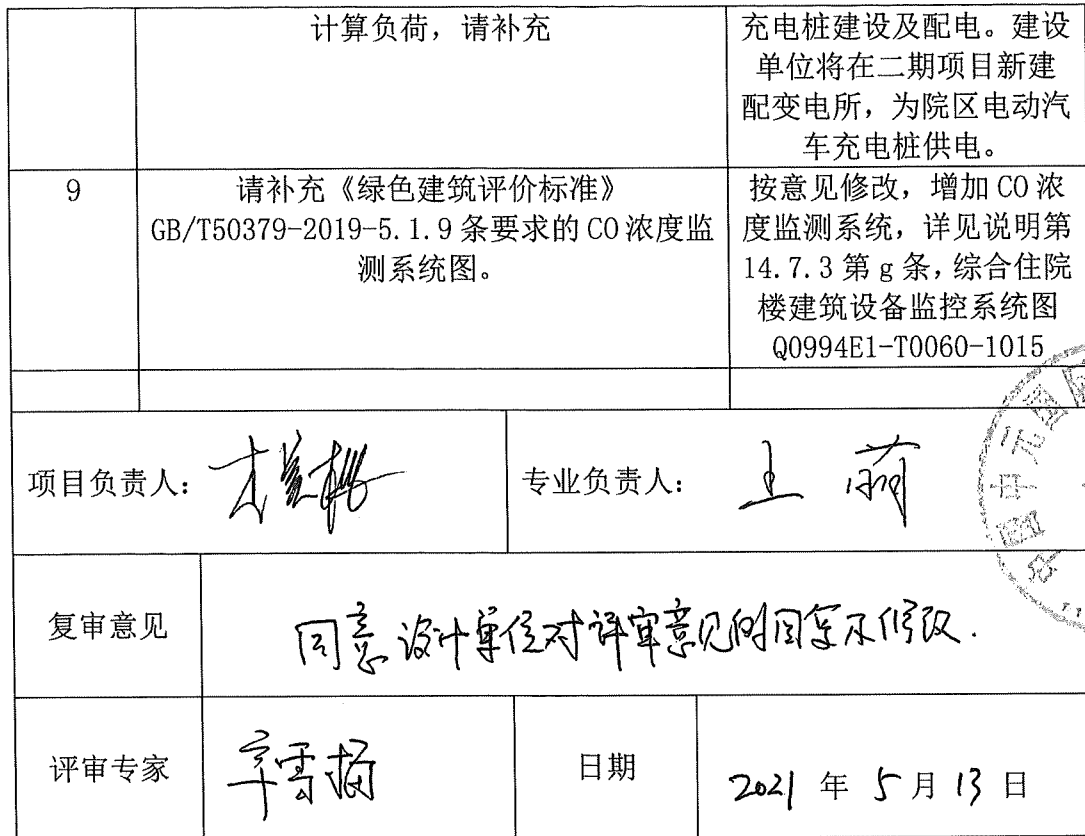 计算负荷，请补充
充电桩建设及配电。建设
单位将在二期项目新建
配变电所，为院区电动汽
车充电桩供电。
9
请补充《绿色建筑评价标准》
GB/T50379-2019-5.1.9条要求的CO浓度监
测系统图。
按意见修改，增加CO浓
度监测系统，详见说明第
14.7.3第g条，综合住院
楼建筑设备监控系统图
Q0994E1-T0060-1015
项目负责人：
专业负责人：
王萌
复审意见
同意设计单位对评审意见的回复及修改.
评审专家
日期
2021年5月13日
中元国